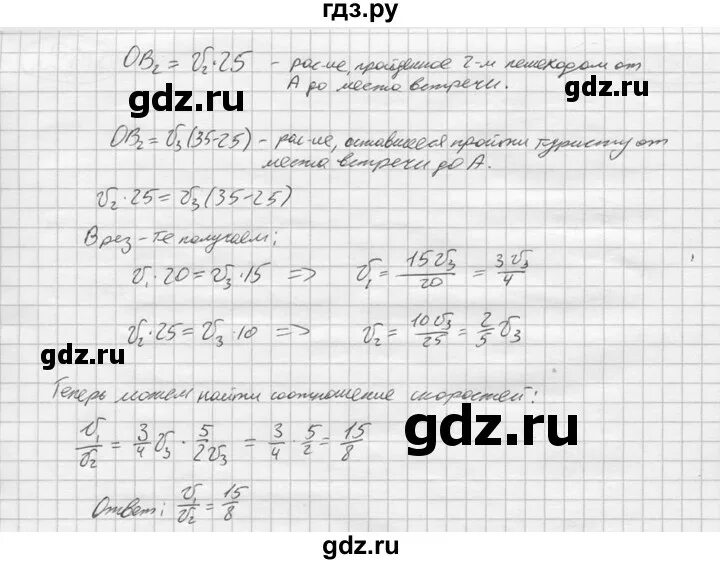 гдз.ру
OB₂ = V₂·25 - рас-ие, пройденное 2-м пешеходом от
А до места встречи.
gdz.ru
OB₂ = V₃(35-25) - рас-ие, оставшееся пройти туристу от
места встречи до А.
gdz.ru
V₂·25 = V₃(35-25)
В рез-те получаем:
V₁·20 = V₃·15 => V₁ = 15V₃/20 = 3V₃/4
gdz.ru
V₂·25 = V₃·10 => V₂ = 10V₃/25 = 2/5 V₃
gdz.ru
Теперь можем найти соотношение скоростей:
V₁/V₂ = 3/4 V₃ · 5/2V₃ = 3/4 · 5/2 = 15/8
gdz.ru
Ответ: V₁/V₂ = 15/8
gdz.ru
gdz.ru